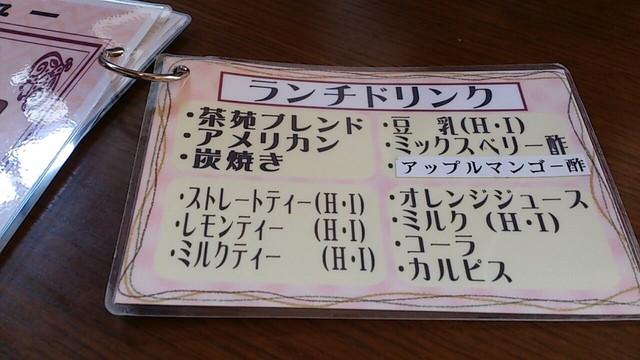 ュー
ランチドリンク
・茶苑ブレンド
・アメリカン
・炭焼き
・豆 乳(H・I)
・ミックスベリー酢
・アップルマンゴー酢
・ストレートティー(H・I)
・レモンティー (H・I)
・ミルクティー (H・I)
・オレンジジュース
・ミルク (H・I)
・コーラ
・カルピス